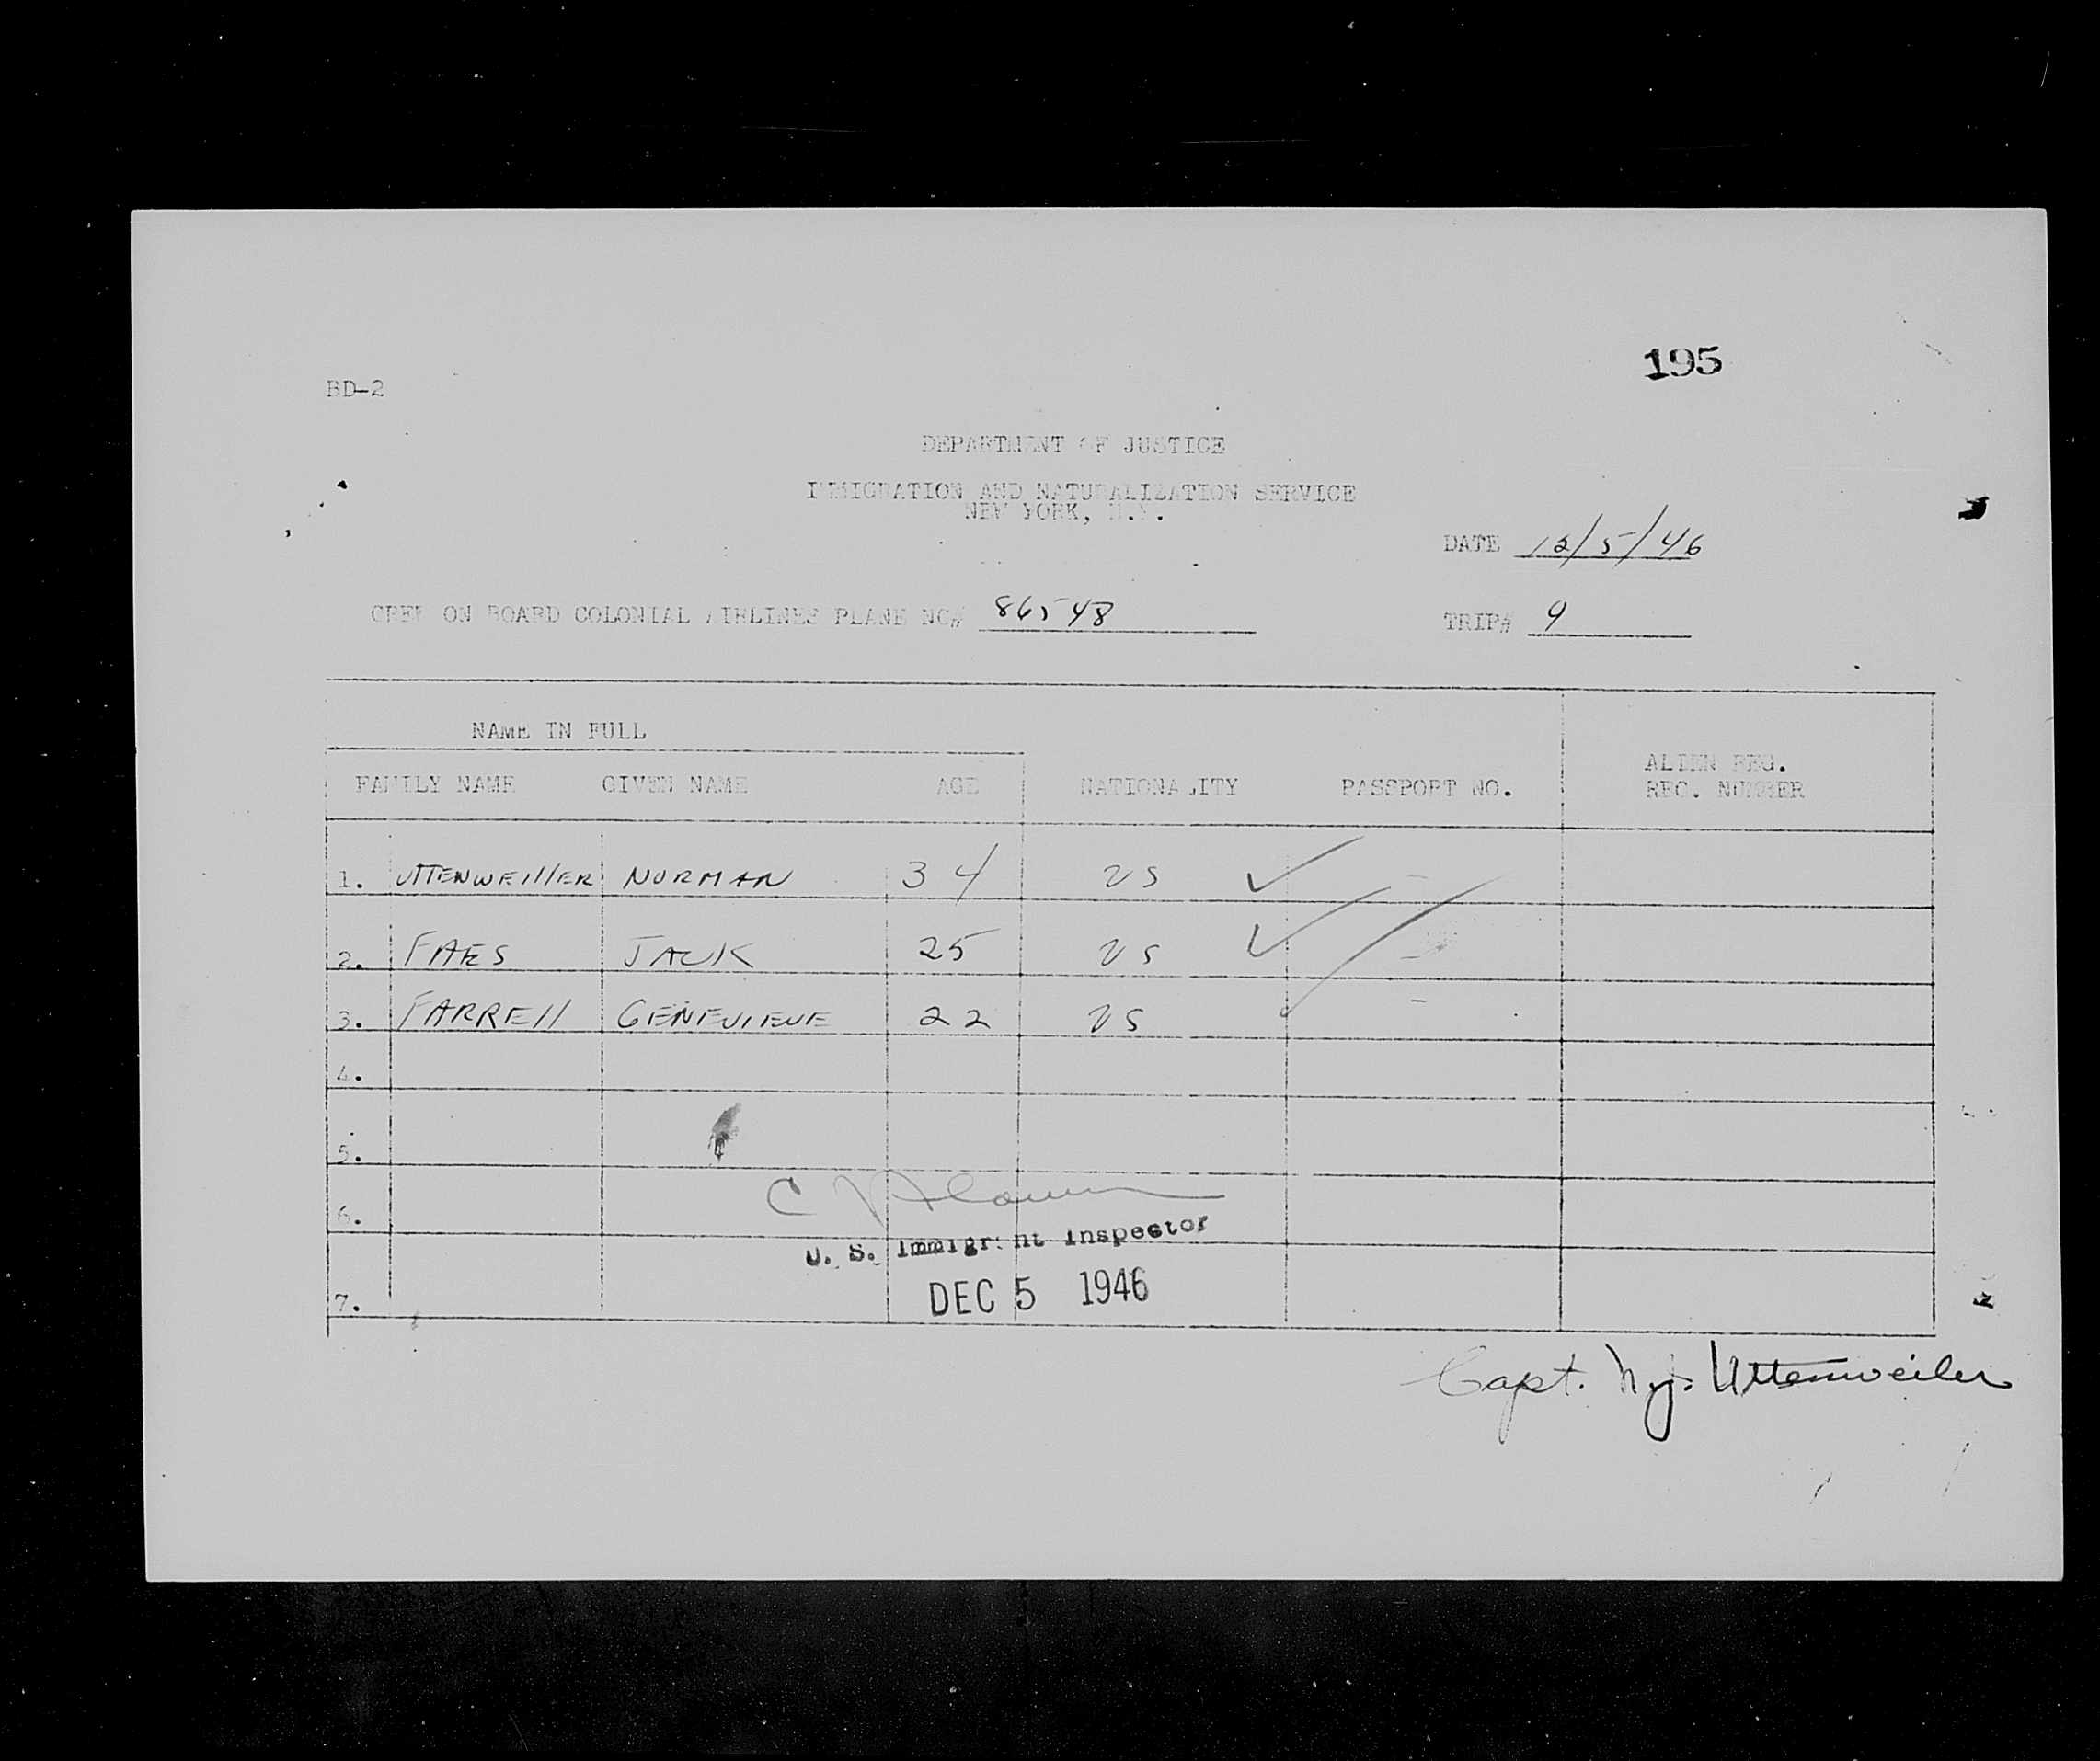 195
BD-2
DEPARTMENT OF JUSTICE
IMMIGRATION AND NATURALIZATION SERVICE
NEW YORK, N.Y.
DATE 12/5/46
CREW ON BOARD COLONIAL AIRLINES PLANE NC# 86548
TRIP# 9
NAME IN FULL
FAMILY NAME GIVEN NAME AGE NATIONALITY PASSPORT NO. ALIEN REG.
REC. NUMBER
1. UTTENWEIllER NORMAN 34 US ✓ -
2. FAES JACK 25 US ✓ -
3. FARREll GENEVIEVE 22 US ✓ -
4.
5.
6.
U. S. Immigrant Inspector
7. DEC 5 1946
Capt. N.J. Uttenweiler